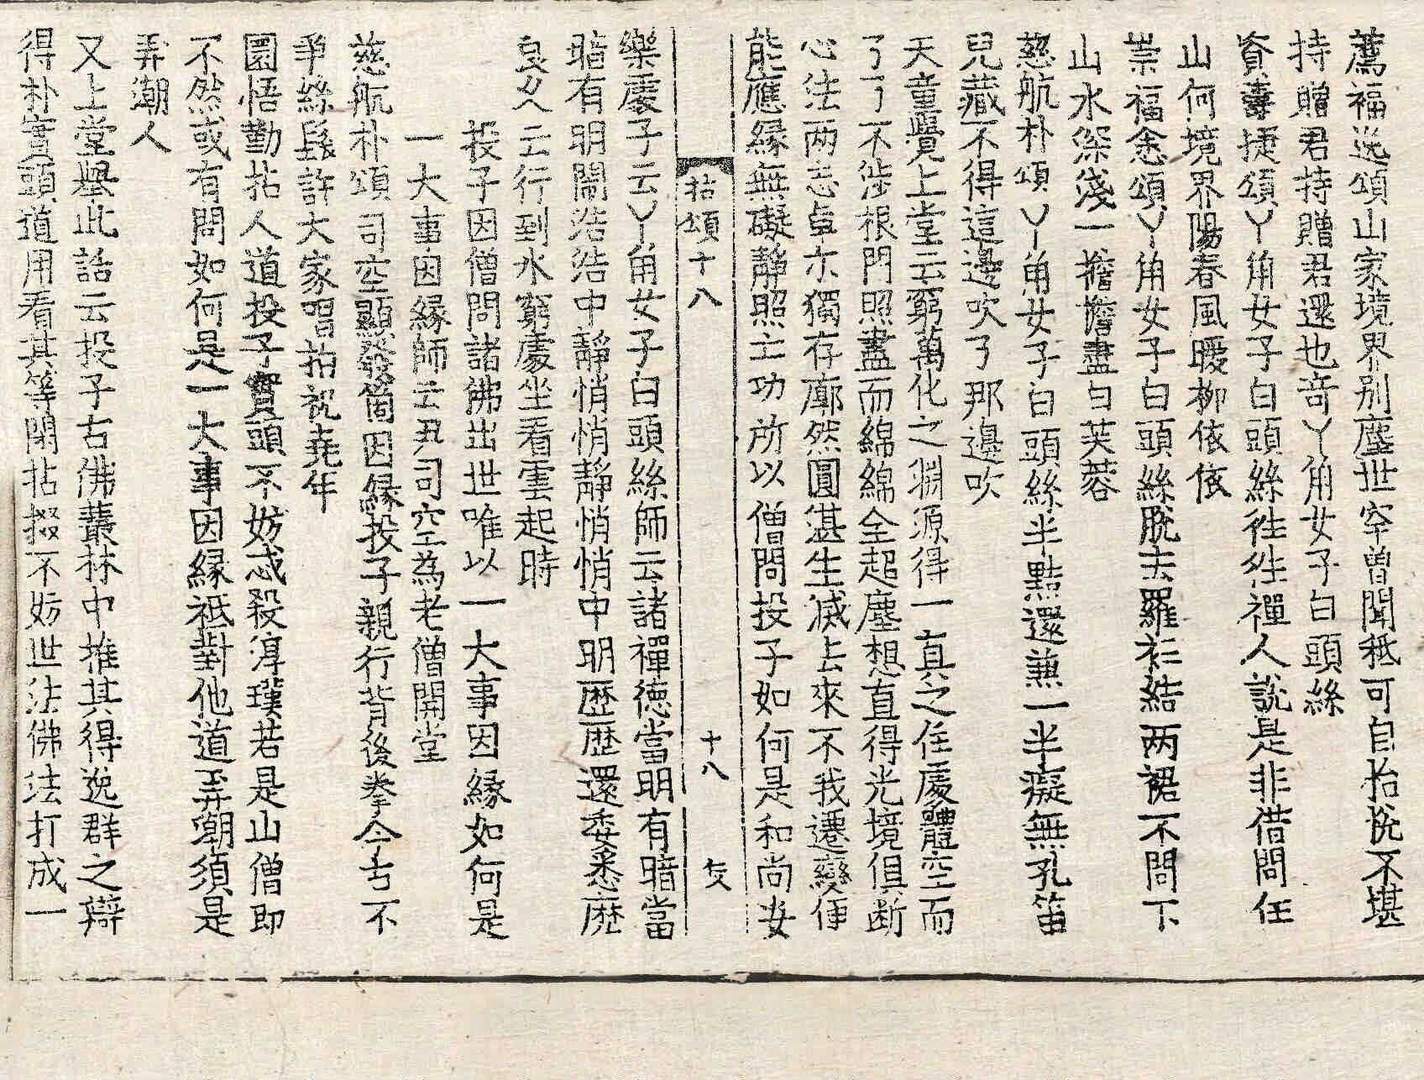 薦福逸頌山家境界別塵世罕曽聞秪可自怡恱不堪
持贈君持贈君還也竒丫角女子白頭絲
資壽捷頌丫角女子白頭絲徃徃禪人説是非借問任
山何境界陽春風暖柳依依
崇福悆頌丫角女子白頭絲脫去羅衫結两裙不問下
山水深淺一擔擔盡白芙蓉
慈航朴頌丫角女子白頭絲半點還兼一半癡無孔笛
兒藏不得這邊吹了那邊吹
天童覺上堂云窮萬化之淵源得一真之住處體空而
了了不涉根門照盡而綿綿全超塵想直得光境俱断
心法两忘貞亦獨存廓然圓湛生滅去來不我遷變便
能應緣無礙靜照之功所以僧問投子如何是和尚安
拈頌十八 十八
樂處子云丫角女子白頭絲師云諸禪德當明有暗當
暗有明閙浩浩中靜悄悄靜悄悄中明歴歴還委悉麽
良久云行到水窮處坐看雲起時
投子因僧問諸佛出世唯以一大事因緣如何是
一大事因緣師云尹司空為老僧開堂
慈航朴頌司空顯發箇因緣投子親行背後拳今古不
爭絲髮許大家唱拍祝堯年
圜悟勤拈人道投子實頭不妨忒殺淳璞若是山僧即
不然或有問如何是一大事因緣祇對他道弄潮須是
弄潮人
又上堂舉此話云投子古佛叢林中推其得逸群之辯
得朴實頭道用看其等閑拈掇不妨世法佛法打成一